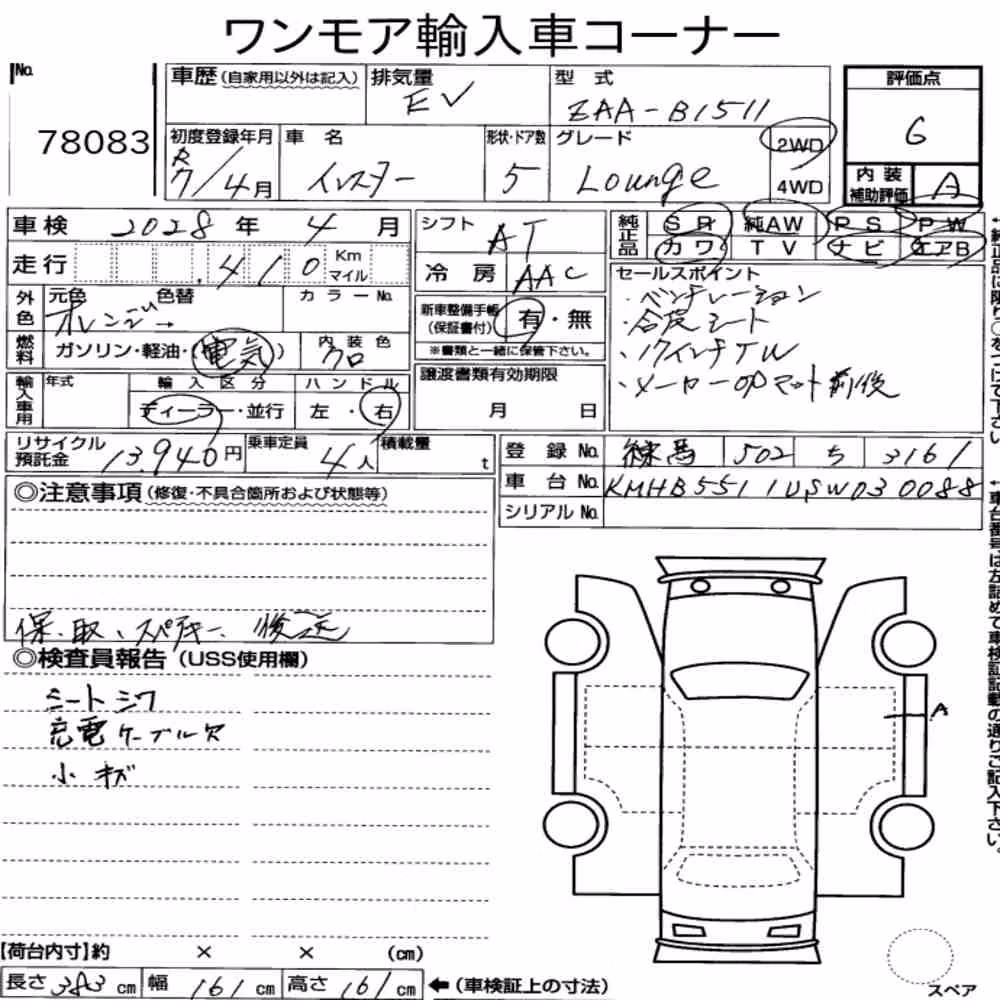 ワンモア輸入車コーナー
No. 78083
車歴(自家用以外は記入) 排気量 EV 型式 ZAA-B1511
初度登録年月 R7/4月 車名 インスター 形状・ドア数 5 グレード Lounge 2WD 4WD
評価点 6
内装補助評価 A
車検 2028年 4月 シフト AT
走行 410 Km マイル 冷房 AAC
純正品 SR 純AW PS PW
カワ TV ナビ エアB
外色 元色 色替 カラーNo.
オレンジ →
燃料 ガソリン・軽油・(電気) 内装色 クロ
新車整備手帳(保証書付) 有・無
※書類と一緒に保管下さい。
セールスポイント
・ベンチレーション
・合皮シート
・17インチTW
・メーカーOPマット前後
輸入車用 年式 輸入区分 ハンドル
ディーラー・並行 左・右
譲渡書類有効期限
月 日
リサイクル預託金 13,940円 乗車定員 4人 積載量 t
登録No. 練馬 502 ち 3161
車台No. KMHB5511USW030088
シリアルNo.
◎注意事項(修復・不具合箇所および状態等)
保、取、スペアキー、後送
◎検査員報告(USS使用欄)
シートシワ
充電ケーブル欠
小キズ
A
【荷台内寸】約 × × (cm)
長さ 383 cm 幅 161 cm 高さ 161 cm ←(車検証上の寸法)
スペア
↑純正品に限り○をつけて下さい
↑車台番号は左詰めで車検証記載の通りご記入下さい。